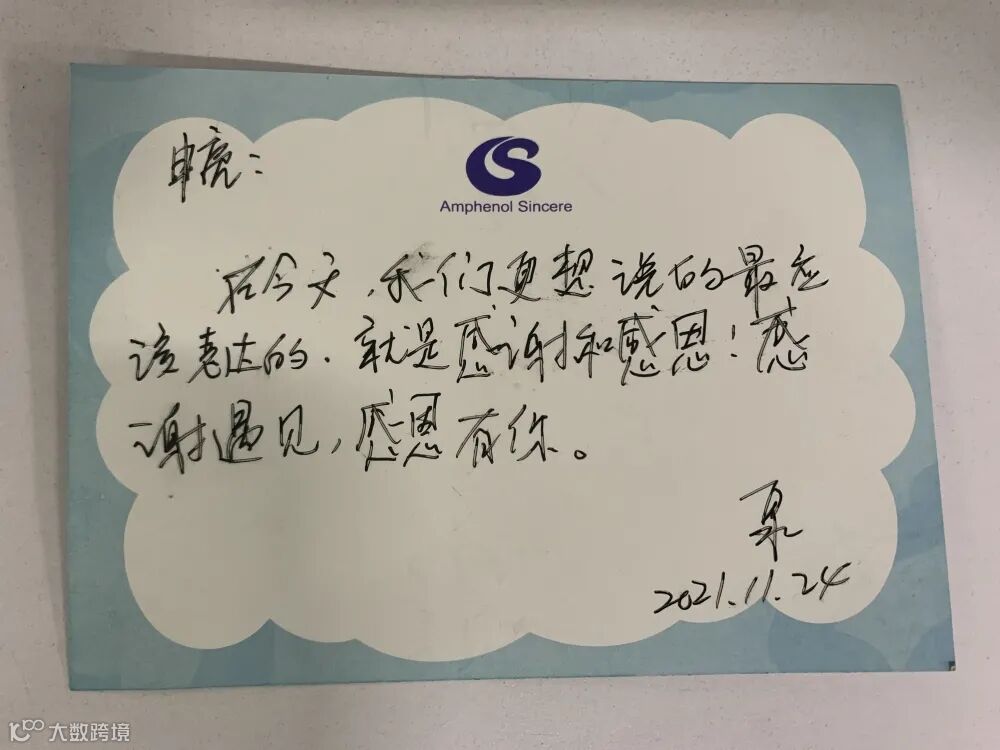 申虎：
Amphenol Sincere
在今天，我们更想说的最应
该表达的．就是感谢和感恩！感
谢遇见，感恩有你。
泉
2021.11.24
大数跨境